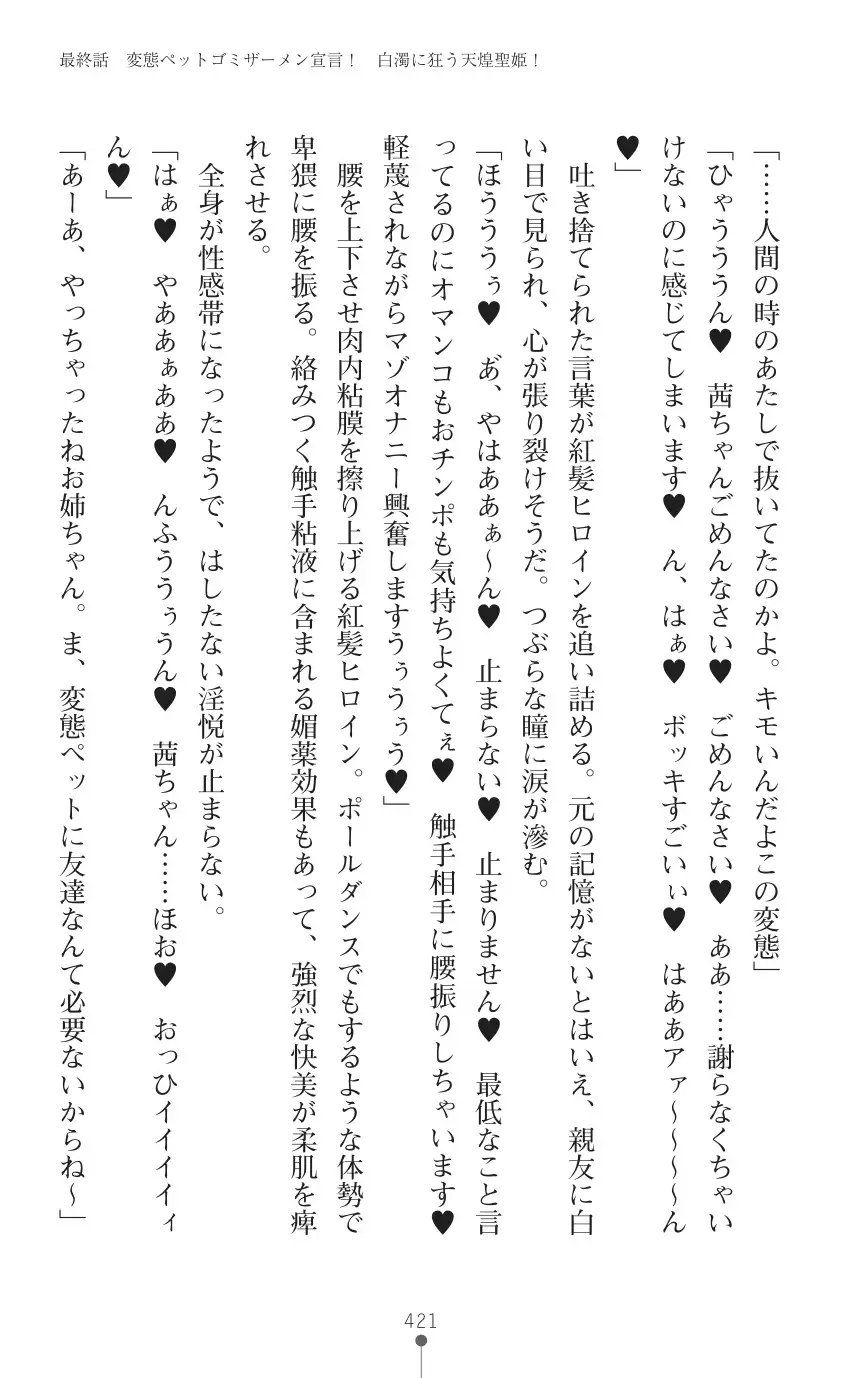 最終話　変態ペットゴミザーメン宣言！　白濁に狂う天煌聖姫！
「……人間の時のあたしで抜いてたのかよ。キモいんだよこの変態」
「ひゃうううん♥　茜ちゃんごめんなさい♥　ごめんなさい♥　ああ……謝らなくちゃい
けないのに感じてしまいます♥　ん、はぁ♥　ボッキすごいぃ♥　はああアァ～～～～ん
♥」
　吐き捨てられた言葉が紅髪ヒロインを追い詰める。元の記憶がないとはいえ、親友に白
い目で見られ、心が張り裂けそうだ。つぶらな瞳に涙が滲む。
「ほうううぅ♥　あ゛、やはああぁ～ん♥　止まらない♥　止まりません♥　最低なこと言
ってるのにオマンコもおチンポも気持ちよくてぇ♥　触手相手に腰振りしちゃいます♥
軽蔑されながらマゾオナニー興奮しますうぅうぅう♥」
　腰を上下させ肉内粘膜を擦り上げる紅髪ヒロイン。ポールダンスでもするような体勢で
卑猥に腰を振る。絡みつく触手粘液に含まれる媚薬効果もあって、強烈な快美が柔肌を痺
れさせる。
　全身が性感帯になったようで、はしたない淫悦が止まらない。
「はぁ♥　やああぁああ♥　んふううぅうん♥　茜ちゃん……ほお♥　おっひイイイイィ
ん♥」
「あーあ、やっちゃったねお姉ちゃん。ま、変態ペットに友達なんて必要ないからね～」
421